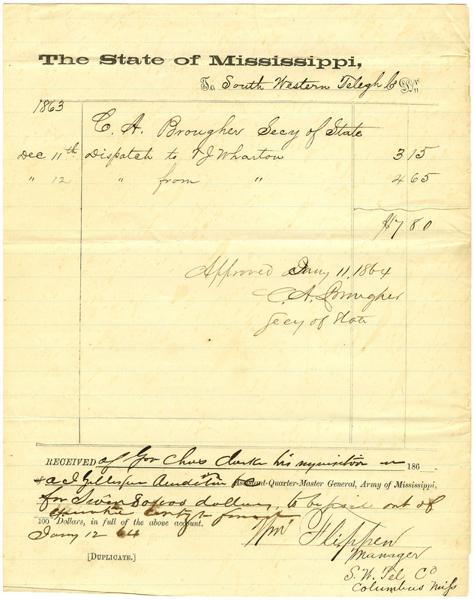 The State of Mississippi,
To South Western Telegh Co Dr
1863
C. A. Brougher Secy of State
Dec 11th Dispatch to T J Wharton 3 15
" 12 " from " 4 65
$7 80
Approved Jany 11, 1864
C. A. Brougher
Secy of State
RECEIVED of Gov Chas Clarke his requisition on 186
A J Gillespie Auditor &c Assistant-Quarter-Master General, Army of Mississippi,
for Seven 80/100 dollars, to be paid out of
100 Dollars, in full of the above account.
Jany 12 64
Wm Flippen
Manager
S. W. Tel Co
Columbus Miss
[DUPLICATE.]